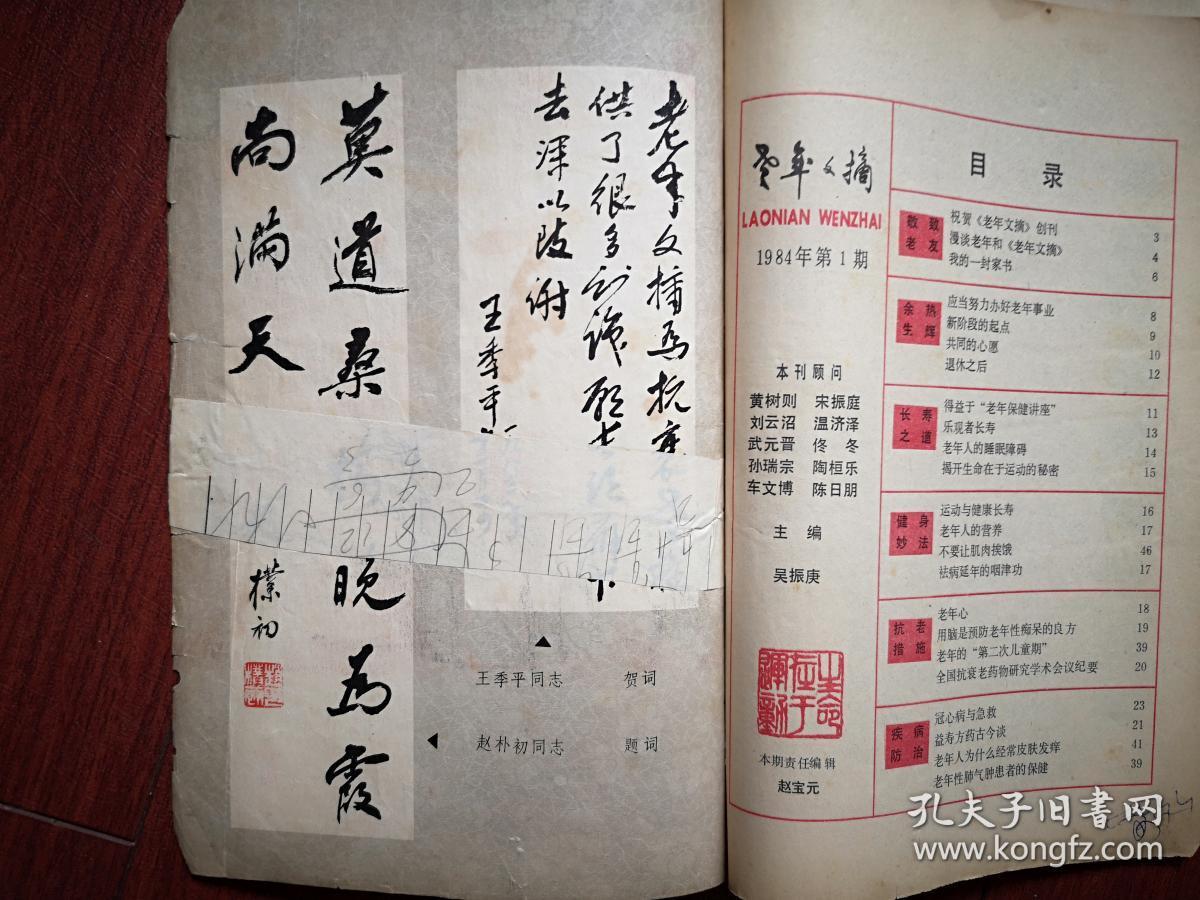 莫道桑
晚为霞
尚满天
樸初
老年文摘为抗衰
供了很多
去 深以致谢
王季平
王季平同志 贺词
赵朴初同志 题词
老年文摘
LAONIAN WENZHAI
1984年第1期
本刊顾问
黄树则 宋振庭
刘云沼 温济泽
武元晋 佟冬
孙瑞宗 陶桓乐
车文博 陈日朋
主编
吴振庚
生命在于运动
本期责任编辑
赵宝元
目录
敬致老友
祝贺《老年文摘》创刊 3
漫谈老年和《老年文摘》 4
我的一封家书 6
余热生辉
应当努力办好老年事业 8
新阶段的起点 9
共同的心愿 10
退休之后 12
长寿之道
得益于“老年保健讲座” 11
乐观者长寿 13
老年人的睡眠障碍 14
揭开生命在于运动的秘密 15
健身妙法
运动与健康长寿 16
老年人的营养 17
不要让肌肉挨饿 46
祛病延年的咽津功 17
抗老措施
老年心 18
用脑是预防老年性痴呆的良方 19
老年的“第二次儿童期” 39
全国抗衰老药物研究学术会议纪要 20
疾病防治
冠心病与急救 23
益寿方药古今谈 21
老年人为什么经常皮肤发痒 41
老年性肺气肿患者的保健 39
孔夫子旧书网
www.kongfz.com